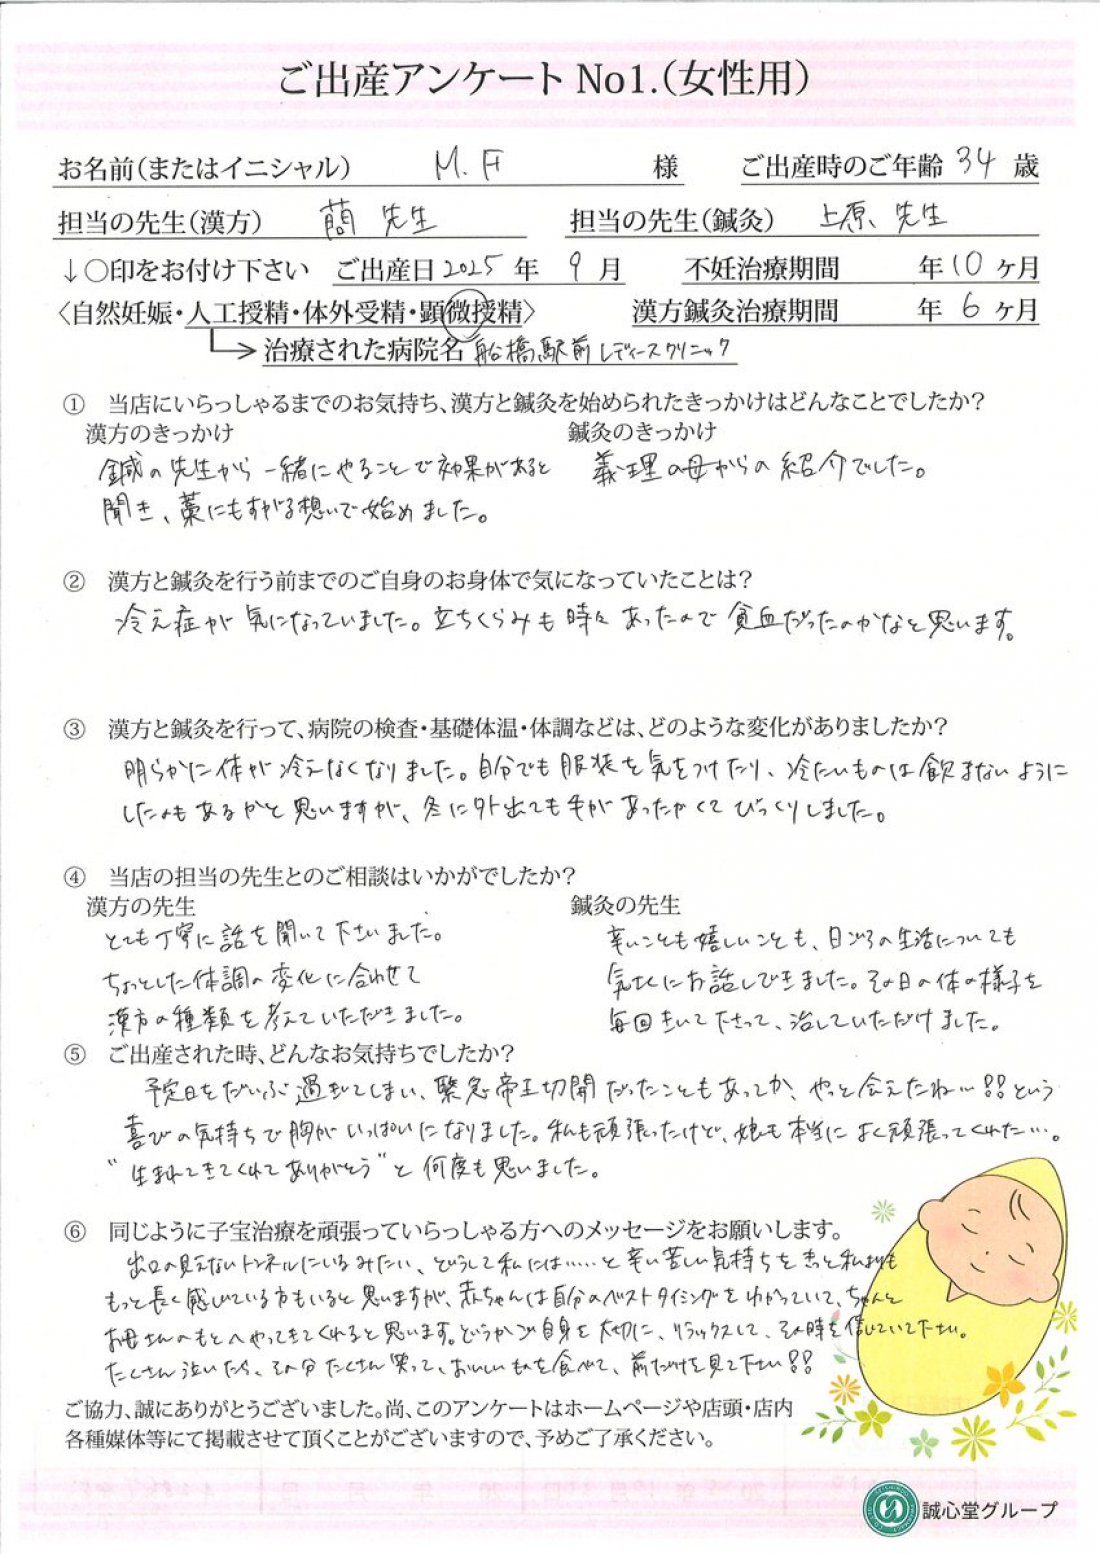 ご出産アンケート No1.(女性用)
お名前(またはイニシャル) M.F 様 ご出産時のご年齢 34 歳
担当の先生(漢方) 先生 担当の先生(鍼灸) 上原 先生
↓○印をお付け下さい ご出産日 2025 年 9 月 不妊治療期間 年 10 ヶ月
〈自然妊娠・人工授精・体外受精・顕微授精〉 漢方鍼灸治療期間 年 6 ヶ月
治療された病院名 船橋駅前レディースクリニック
① 当店にいらっしゃるまでのお気持ち、漢方と鍼灸を始められたきっかけはどんなことでしたか?
漢方のきっかけ 鍼灸のきっかけ
鍼の先生から一緒にやることで効果があると 義理の母からの紹介でした。
聞き、藁にもすがる想いで始めました。
② 漢方と鍼灸を行う前までのご自身のお身体で気になっていたことは?
冷え症が気になっていました。立ちくらみも時々あったので貧血だったのかなと思います。
③ 漢方と鍼灸を行って、病院の検査・基礎体温・体調などは、どのような変化がありましたか?
明らかに体が冷えなくなりました。自分でも服装を気をつけたり、冷たいものは飲まないように
したのもあるかと思いますが、冬に外出ても手があったかくてびっくりしました。
④ 当店の担当の先生とのご相談はいかがでしたか?
漢方の先生 鍼灸の先生
とても丁寧に話を聞いて下さいました。 辛いことも嬉しいことも、日ごろの生活についても
ちょっとした体調の変化に合わせて 気さくにお話しできました。その日の体の様子を
漢方の種類を考えていただきました。 毎回きいて下さって、治していただけました。
⑤ ご出産された時、どんなお気持ちでしたか?
予定日をだいぶ過ぎてしまい、緊急帝王切開だったこともあってか、やっと会えたね…!!という
喜びの気持ちで胸がいっぱいになりました。私も頑張ったけど、娘も本当によく頑張ってくれた…。
"生まれてきてくれてありがとう"と何度も思いました。
⑥ 同じように子宝治療を頑張っていらっしゃる方へのメッセージをお願いします。
出口の見えないトンネルにいるみたい、どうして私には……と辛い苦しい気持ちをきっと私よりも
もっと長く感じている方もいると思いますが、赤ちゃんは自分のベストタイミングをわかっていて、ちゃんと
お母さんのもとへやってきてくれると思います。どうかご自身を大切に、リラックスして、その時を信じていて下さい。
たくさん泣いたら、その分たくさん笑って、おいしいものを食べて、前だけを見て下さい!!
ご協力、誠にありがとうございました。尚、このアンケートはホームページや店頭・店内
各種媒体等にて掲載させて頂くことがございますので、予めご了承ください。
誠心堂グループ